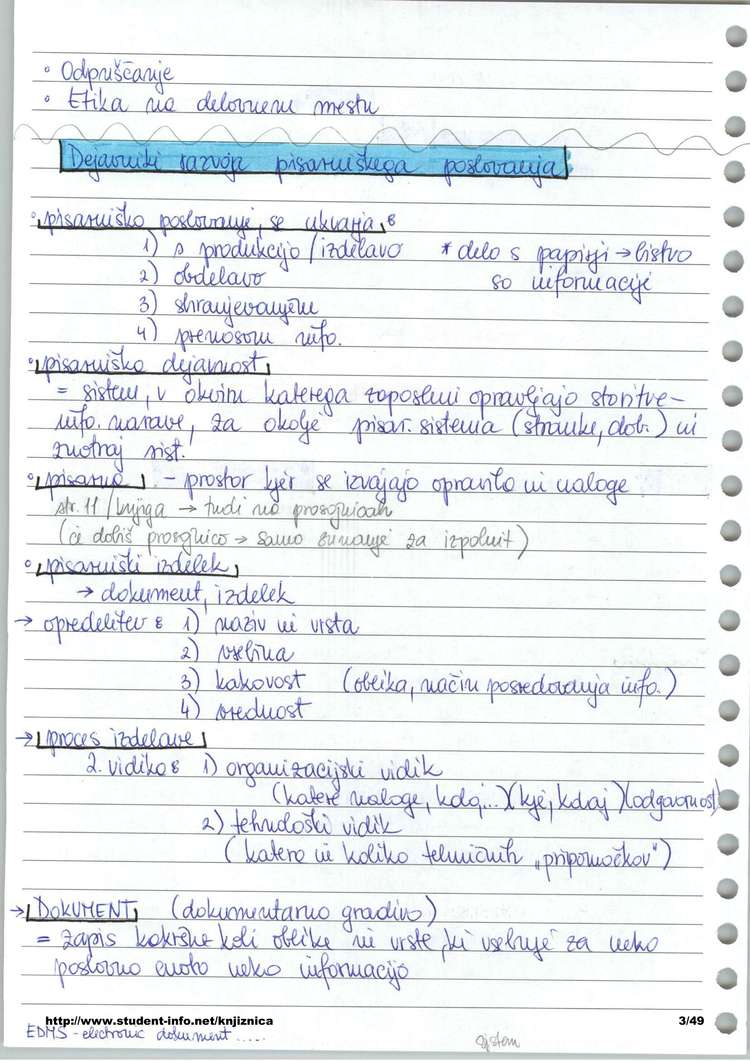 • Odpuščanje
• Etika na delovnem mestu
Dejavniki razvoja pisarniškega poslovanja
• pisarniško poslovanje, se ukvarja:
1) s produkcijo / izdelavo * delo s papirji → bistvo
2) obdelavo so informacije
3) shranjevanjem
4) prenosom info.
• pisarniško dejavnost,
= sistem, v okviru katerega zaposleni opravljajo storitve -
info. narave, za okolje pisar. sistema (stranke, dob.) in
znotraj sist.
• pisarna - prostor kjer se izvajajo opravila in naloge
str. 11 / knjiga → tudi na prosojnicah
(če dobiš prosojnico → samo za izpolnit)
• pisarniški izdelek,
→ dokument, izdelek
→ opredelitev: 1) naziv in vrsta
2) vsebina
3) kakovost (oblika, način posredovanja info.)
4) vrednost
→ proces izdelave
2. vidika: 1) organizacijski vidik
(katere naloge, kdo,...)(kje, kdaj)(odgovornost)
2) tehnološki vidik
(katero in koliko tehničnih „pripomočkov")
→ DOKUMENT, (dokumentarno gradivo)
= zapis kakršne koli oblike in vrste, ki vsebuje za neko
poslovno enoto neko informacijo
http://www.student-info.net/knjiznica 3/49
EDMS - electronic dokument .....
system